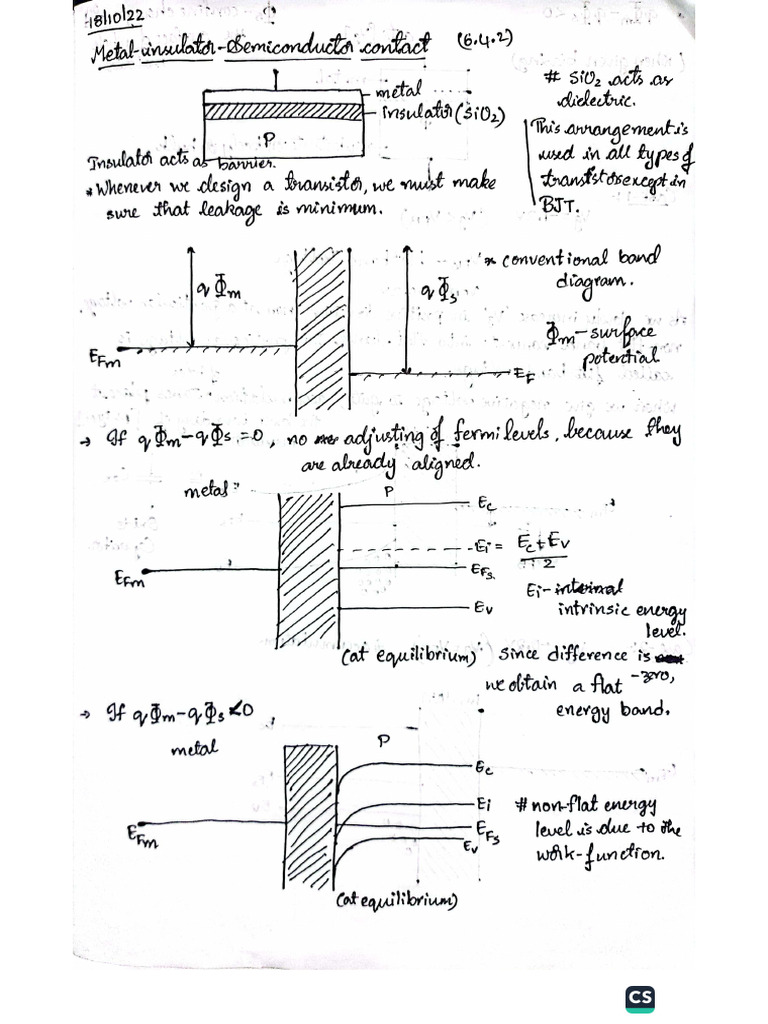 18/10/22
Metal-insulator-Semiconductor contact (6.4.2)
metal
insulator (SiO2)
P
# SiO2 acts as
dielectric.
This arrangement is
used in all types of
transistors except in
BJT.
Insulator acts as barrier.
* Whenever we design a transistor, we must make
sure that leakage is minimum.
qΦm
qΦs
* conventional band
diagram.
Φm - surface
potential
EFm
EF
→ If qΦm-qΦs=0, no adjusting of fermi levels, because they
are already aligned.
metal
P
Ec
Ei = Ec+Ev
2
EFm
EFs
Ei- intrinsic energy
level.
Ev
(at equilibrium)
Since difference is
zero,
we obtain a flat
energy band.
→ If qΦm-qΦs<0,
metal
P
Ec
Ei
EFm
EFs
Ev
# non-flat energy
level is due to the
work-function.
(at equilibrium)
CS